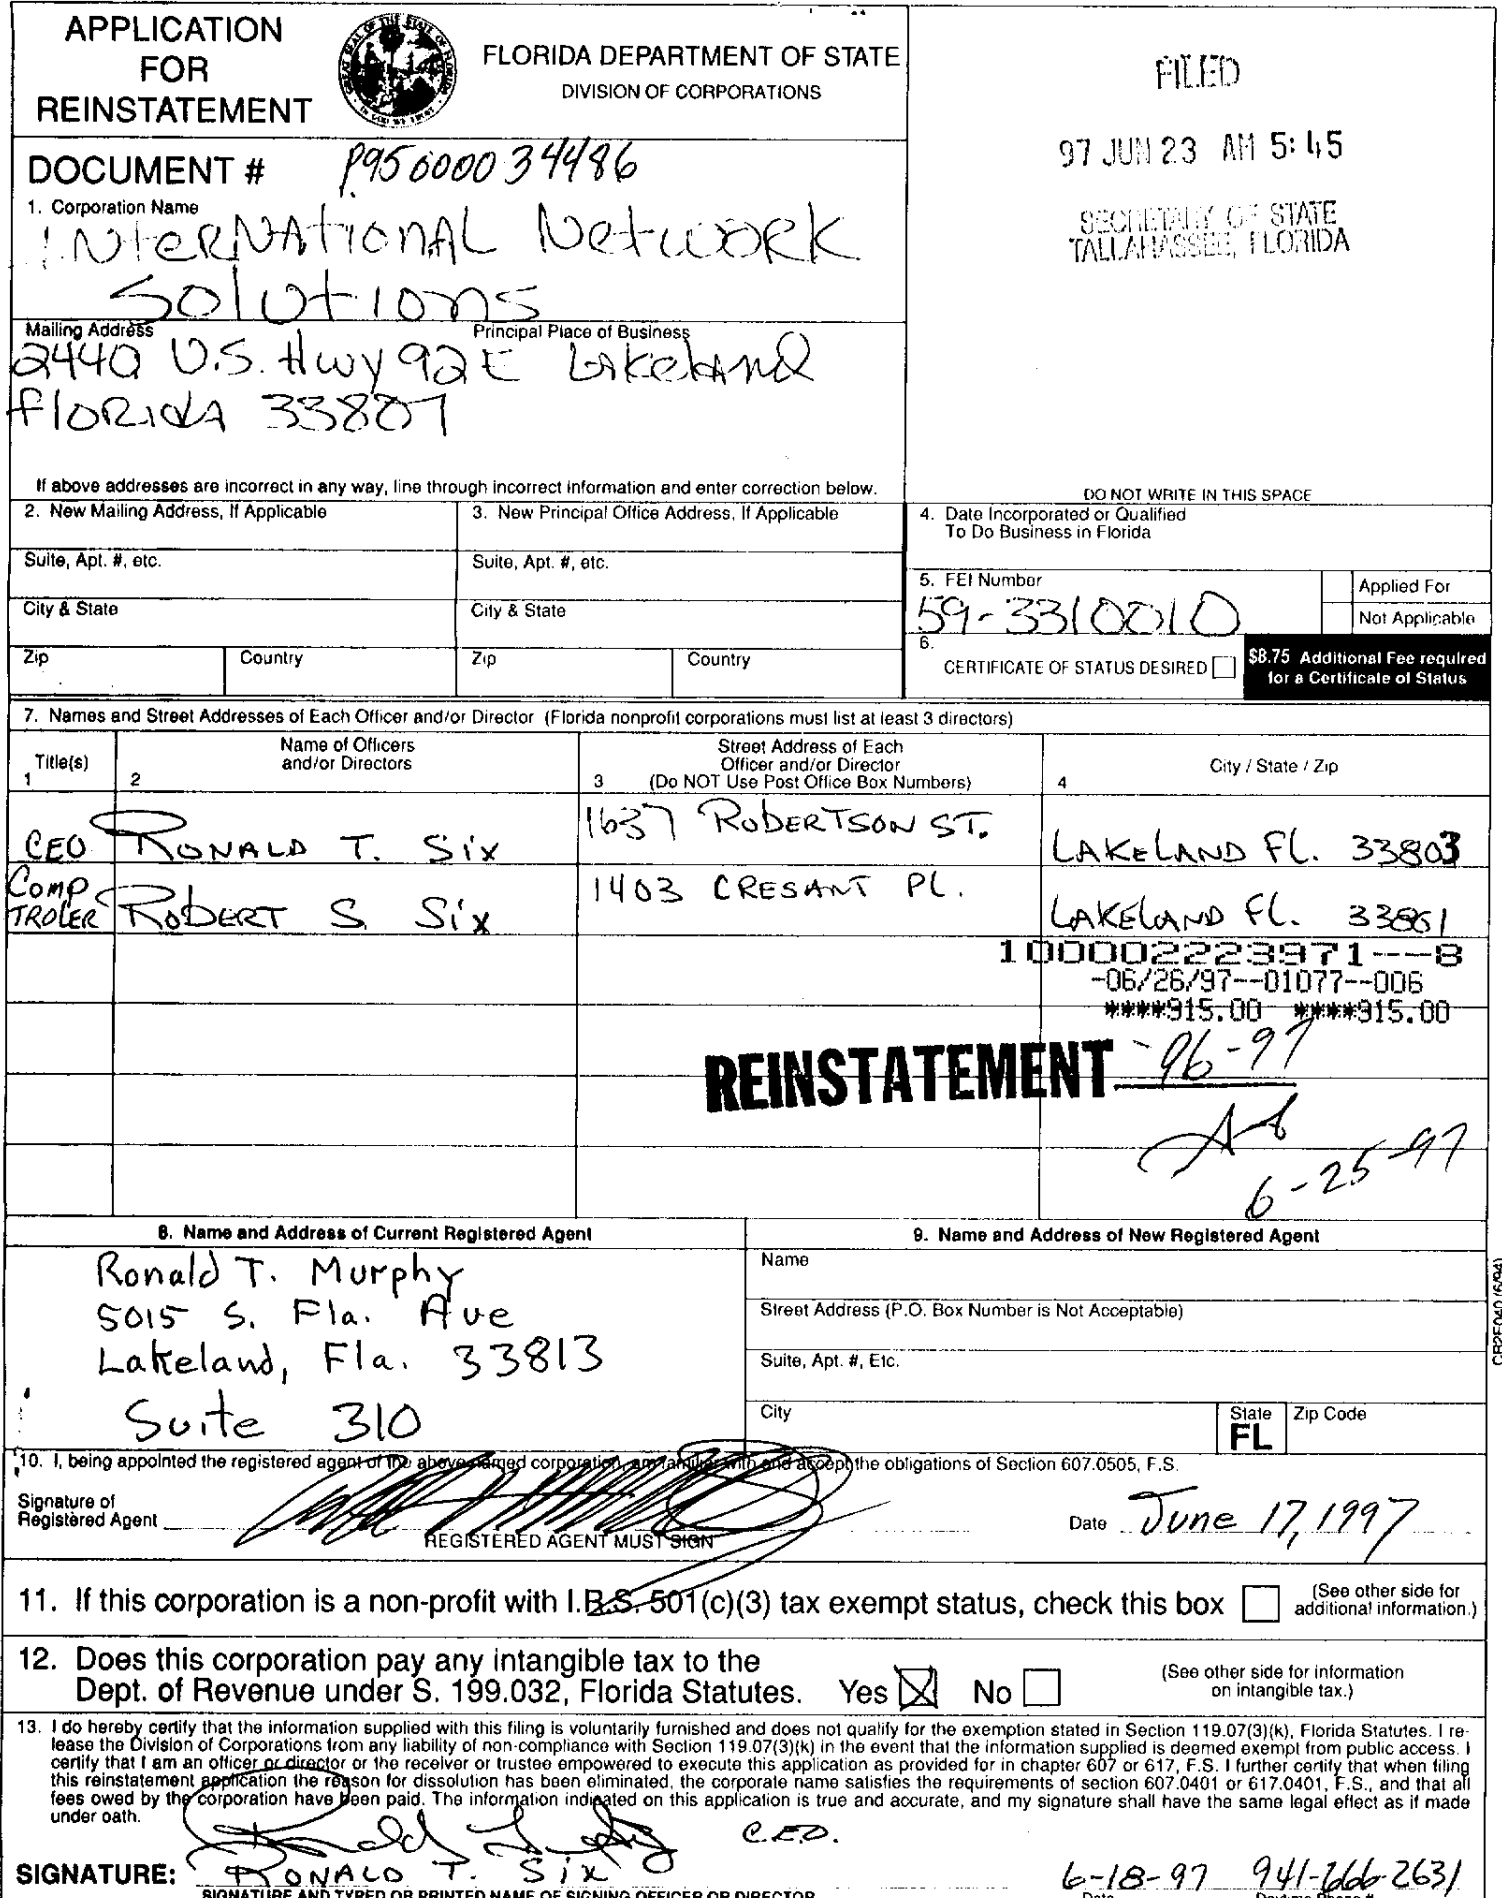 APPLICATION
FOR
REINSTATEMENT
FLORIDA DEPARTMENT OF STATE
DIVISION OF CORPORATIONS
FILED
97 JUN 23 AM 5:45
SECRETARY OF STATE
TALLAHASSEE, FLORIDA
DOCUMENT # P95000034486
1. Corporation Name
INterNATioNAL NetwORK
Solutions
Mailing Address Principal Place of Business
2440 U.S. Hwy 92E LAKelAND
FlORidA 33807
If above addresses are incorrect in any way, line through incorrect information and enter correction below.
DO NOT WRITE IN THIS SPACE
2. New Mailing Address, If Applicable
3. New Principal Office Address, If Applicable
4. Date Incorporated or Qualified
To Do Business in Florida
Suite, Apt. #, etc.
Suite, Apt. #, etc.
5. FEI Number
59-3310010
Applied For
Not Applicable
City & State
City & State
6.
CERTIFICATE OF STATUS DESIRED
$8.75 Additional Fee required
for a Certificate of Status
Zip Country Zip Country
7. Names and Street Addresses of Each Officer and/or Director (Florida nonprofit corporations must list at least 3 directors)
Title(s)
1
Name of Officers
and/or Directors
2
Street Address of Each
Officer and/or Director
3 (Do NOT Use Post Office Box Numbers)
City / State / Zip
4
CEO RONALD T. Six 1637 ROBERTSON ST. LAKELAND FL. 33803
COMP
TROLER ROBERT S. Six 1403 CRESANT PL. LAKELAND FL. 33801
100002223971---8
-06/26/97--01077--006
****915.00 ****915.00
REINSTATEMENT -96-97
6-25-97
8. Name and Address of Current Registered Agent
Ronald T. Murphy
5015 S. Fla. Ave
Lakeland, Fla. 33813
Suite 310
9. Name and Address of New Registered Agent
Name
Street Address (P.O. Box Number is Not Acceptable)
Suite, Apt. #, Etc.
City State FL Zip Code
CR2E040 (6/94)
10. I, being appointed the registered agent of the above named corporation, am familiar with and accept the obligations of Section 607.0505, F.S.
Signature of
Registered Agent
REGISTERED AGENT MUST SIGN
Date June 17, 1997
11. If this corporation is a non-profit with I.R.S. 501(c)(3) tax exempt status, check this box
(See other side for
additional information.)
12. Does this corporation pay any intangible tax to the
Dept. of Revenue under S. 199.032, Florida Statutes. Yes No
(See other side for information
on intangible tax.)
13. I do hereby certify that the information supplied with this filing is voluntarily furnished and does not qualify for the exemption stated in Section 119.07(3)(k), Florida Statutes. I re-
lease the Division of Corporations from any liability of non-compliance with Section 119.07(3)(k) in the event that the information supplied is deemed exempt from public access. I
certify that I am an officer or director or the receiver or trustee empowered to execute this application as provided for in chapter 607 or 617, F.S. I further certify that when filing
this reinstatement application the reason for dissolution has been eliminated, the corporate name satisfies the requirements of section 607.0401 or 617.0401, F.S., and that all
fees owed by the corporation have been paid. The information indicated on this application is true and accurate, and my signature shall have the same legal effect as if made
under oath.
C.E.O.
SIGNATURE: RONALD T. Six 6-18-97 941-666-2631
SIGNATURE AND TYPED OR PRINTED NAME OF SIGNING OFFICER OR DIRECTOR Date Daytime Phone #